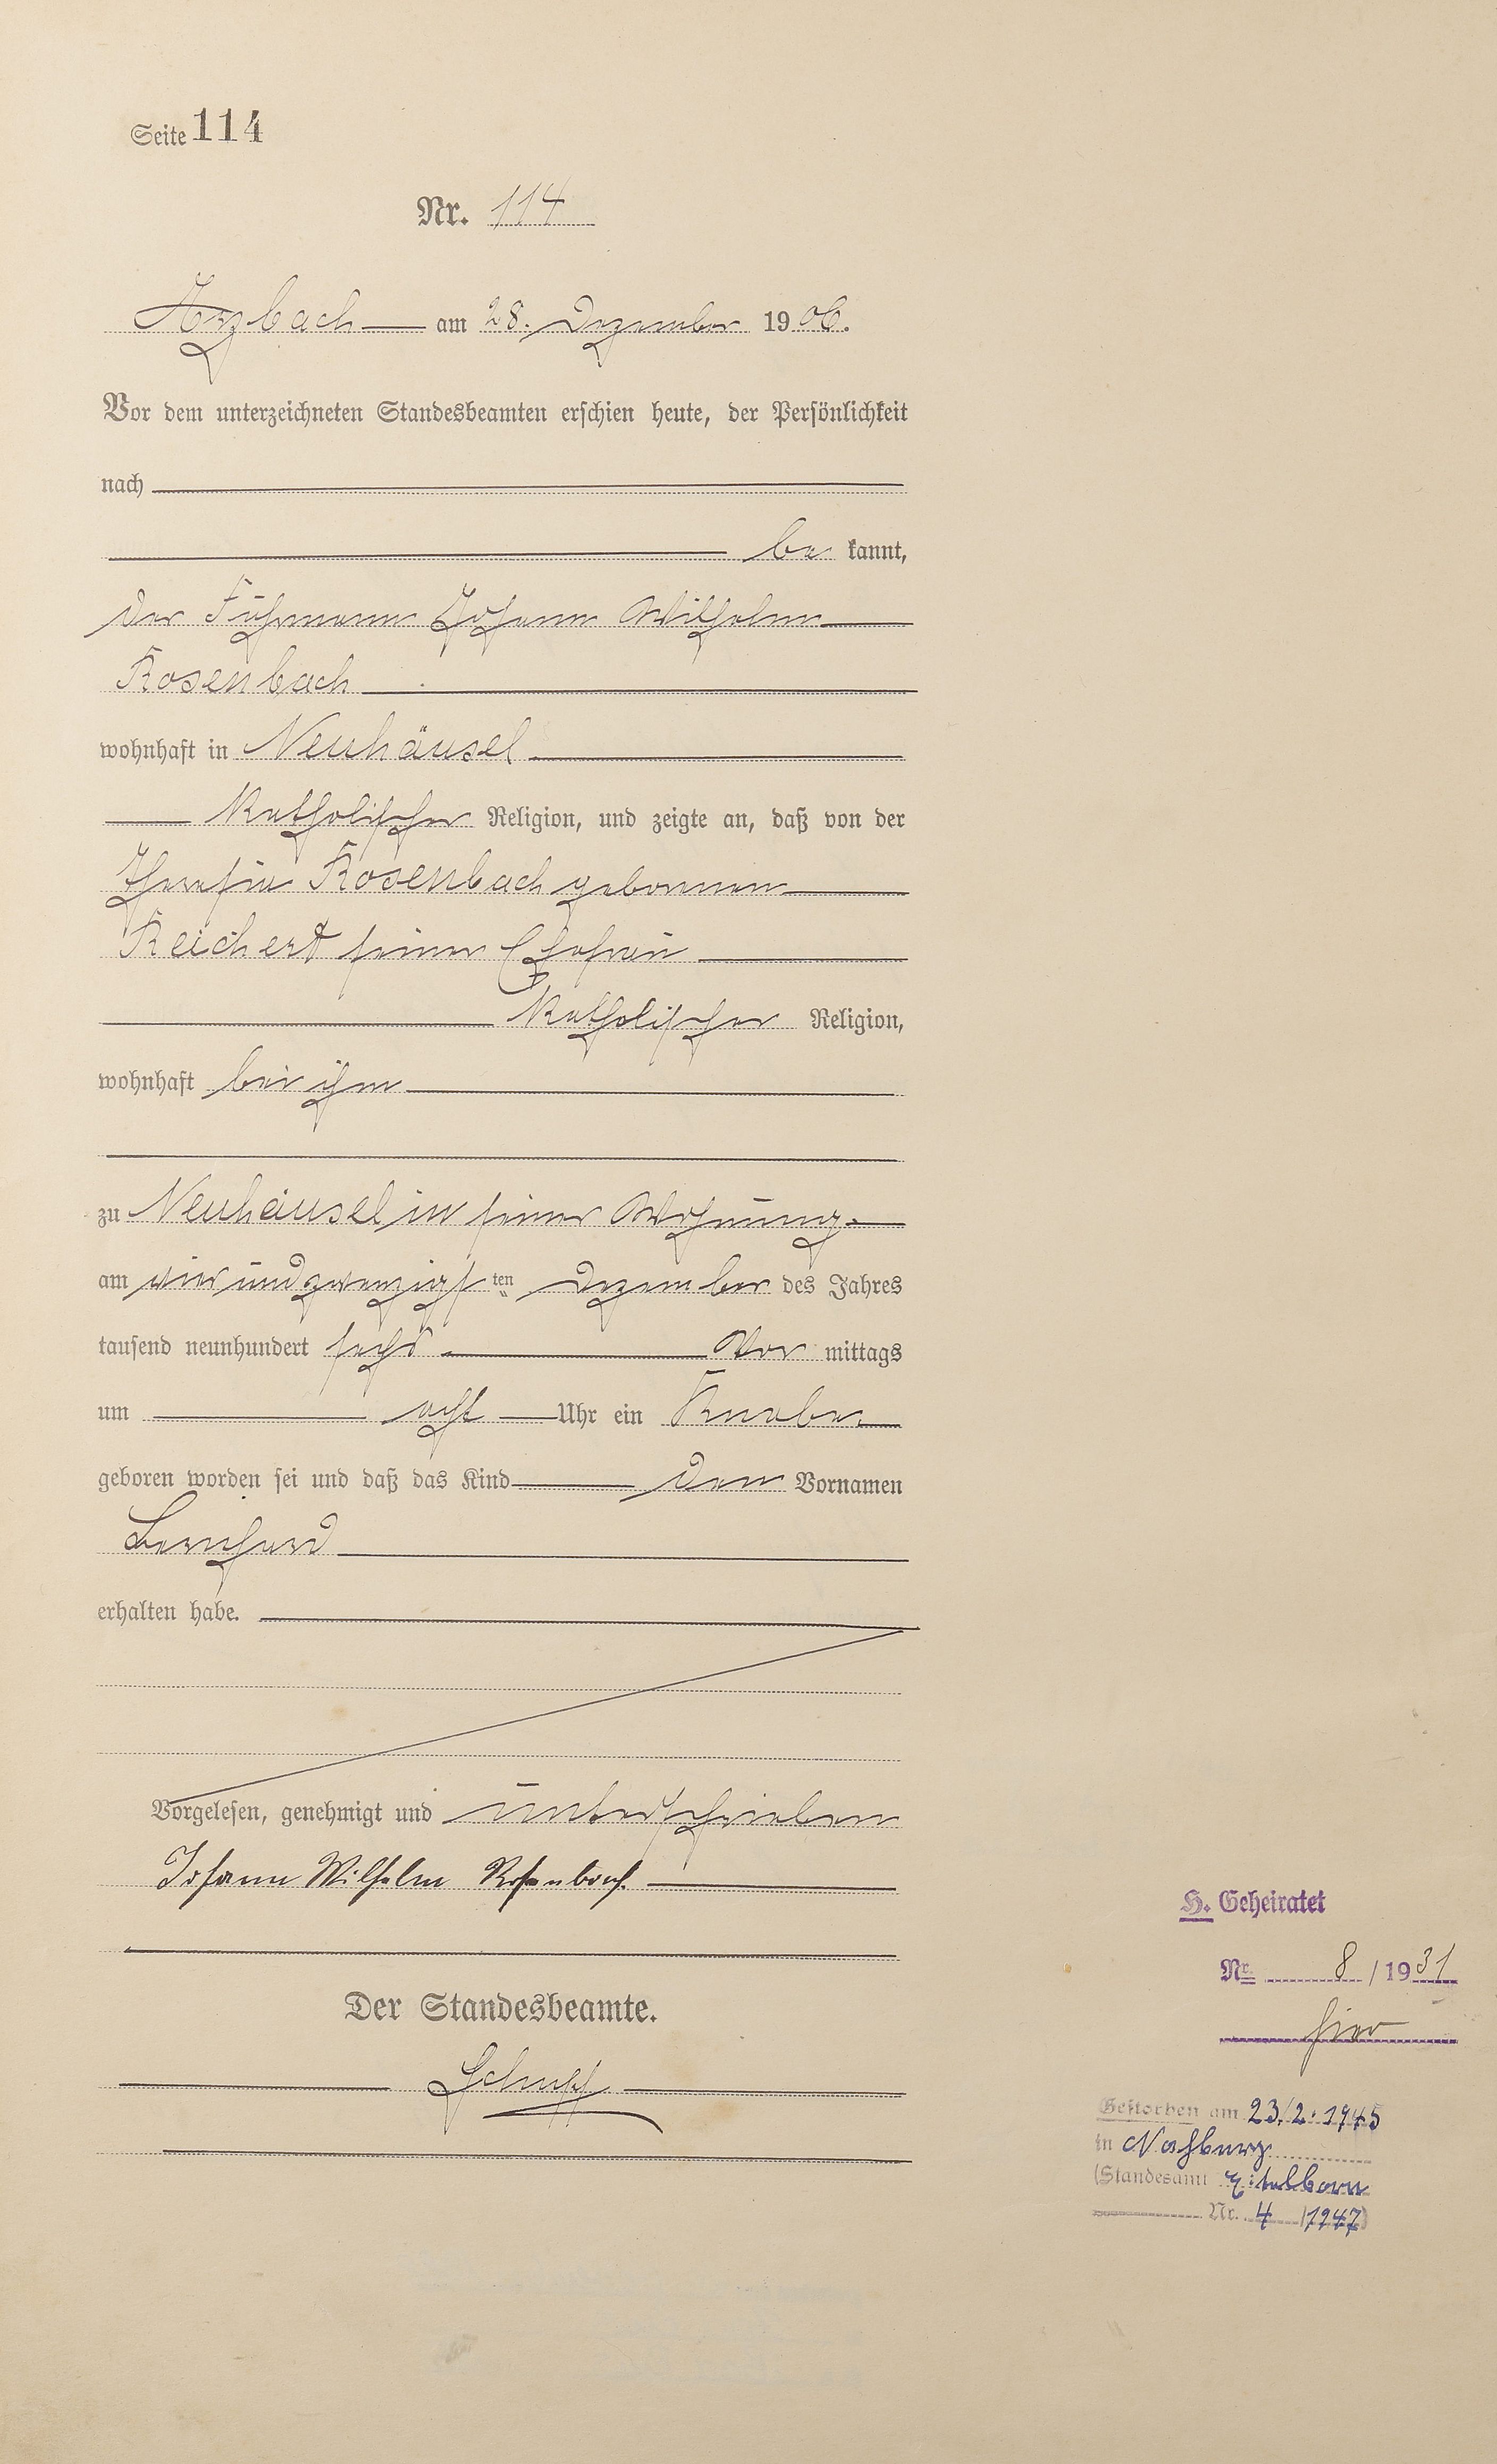 Seite 114
Nr. 114
Arzbach am 28. Dezember 1906.
Vor dem unterzeichneten Standesbeamten erschien heute, der Persönlichkeit
nach
be kannt,
der Fuhrmann Johann Wilhelm
Rosenbach
wohnhaft in Neuhäusel
katholischer Religion, und zeigte an, daß von der
Theresia Rosenbach geborenen
Reichert seiner Ehefrau
katholischer Religion,
wohnhaft bei ihm
zu Neuhäusel in seiner Wohnung
am vierundzwanzigsten Dezember des Jahres
tausend neunhundert sechs Vor mittags
um acht Uhr ein Knabe
geboren worden sei und daß das Kind den Vornamen
Bernhard
erhalten habe.
Vorgelesen, genehmigt und unterschrieben
Johann Wilhelm Rosenbach
Der Standesbeamte.
H. Geheiratet
Nr. 8 / 1931
hier
Gestorben am 23.2.1945
in
(Standesamt Eitelborn
Nr. 4 / 1947)